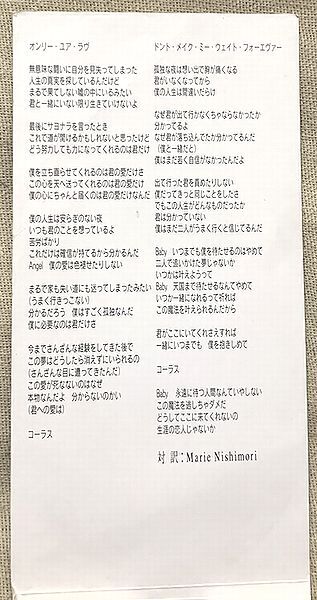 オンリー・ユア・ラヴ
無意味な闘いに自分を見失ってしまった
人生の真実を探しているんだけど
まるで果てしない嘘の中にいるみたい
君と一緒にいない限り生きていけないよ
最後にサヨナラを言ったとき
これで道が開けるかもしれないと思ったけど
どう努力しても力になってくれるのは君だけ
僕を立ち直らせてくれるのは君の愛だけさ
この心を天へ送ってくれるのは君の愛だけ
僕の心にちゃんと届くのは君の愛だけなんだ
僕の人生は安らぎのない夜
いつも君のことを想っているよ
苦労ばかり
これだけは確信が持てるから分かるんだ
Angel 僕の愛は色褪せたりしない
まるで家も失い道にも迷ってしまったみたい
(うまく行きっこない)
分かるだろう 僕はすごく孤独なんだ
僕に必要なのは君だけさ
今までさんざんな経験をしてきた後で
この夢はどうしたら消えずにいられるの
(さんざんな目に遭ってきたんだ)
この愛が死なないのはなぜ
本物なんだよ 分からないのかい
(君への愛は)
コーラス
ドント・メイク・ミー・ウェイト・フォーエヴァー
孤独な夜は想い出で胸が痛くなる
君がいなくなってから
僕の人生は間違いだらけ
なぜ君が出て行かなくちゃならなかったか
分かってるよ
なぜ君が落ち込んでたか分かってるんだ
(僕と一緒だと)
僕はまだ若く自信がなかったんだよ
出て行った君を責めたりしない
僕だってきっと同じことをしたさ
でもこの人生がどんなものだったか
君は分かっていない
僕はまだ二人がうまく行くと信じてるんだ
Baby いつまでも僕を待たせるのはやめて
二人で追いかけた夢じゃないか
いつかは叶えようって
Baby 天国まで待たせるなんてやめて
いつか一緒になれるって祈れば
この魔法を叶えられるんだから
君がここにいてくれさえすれば
一緒にいつまでも 僕を抱きしめて
コーラス
Baby 永遠に待つ人間なんていやしない
この魔法を逃しちゃダメだ
どうしてここに来てくれないの
生涯の恋人じゃないか
対 訳：Marie Nishimori